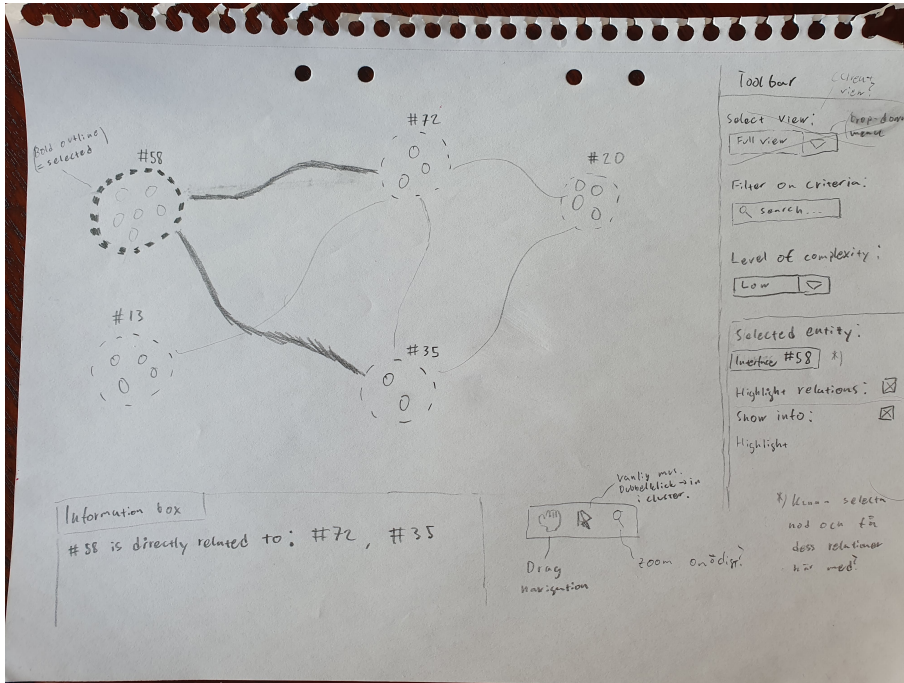 Bold outline
= selected
#58
#72
#20
#13
#35
Toolbar
view?
Select view:
Drop-down
menu
Full view
Filter on criteria:
Search...
Level of complexity:
Low
Selected entity:
Interface #58 *)
Highlight relations:
Show info:
Highlight
Information box
#58 is directly related to: #72, #35
Vanlig mus.
Dubbelklick → in
i cluster.
Drag
navigation
Zoom onödigt?
*) Kunna selecta
nod och få
dess relationer
här med?